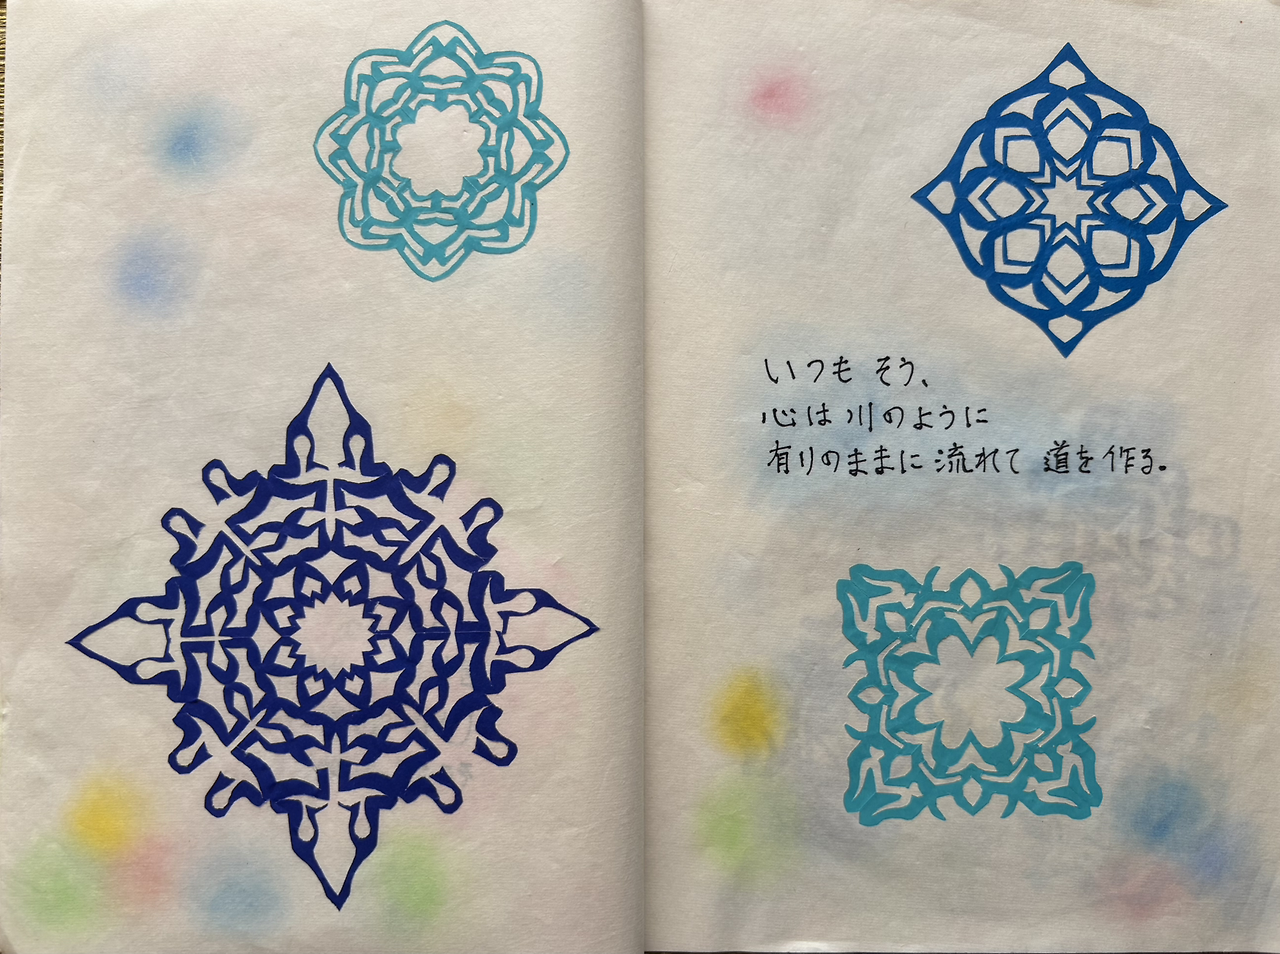 いつも そう、
心は川のように
有りのままに 流れて 道を作る。